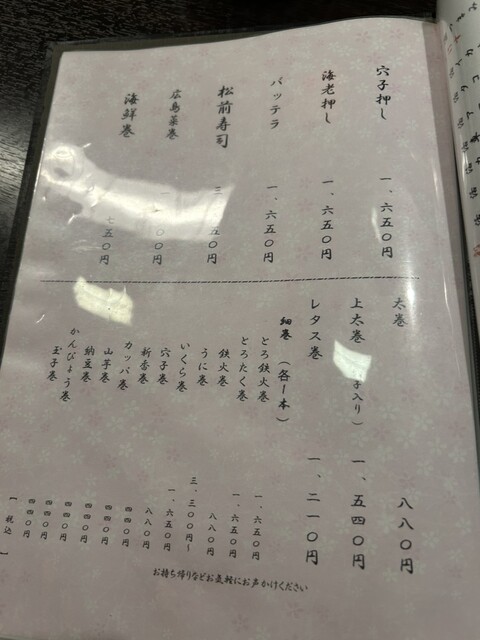 穴子押し 一、六五〇円
海老押し 一、六五〇円
バッテラ 一、六五〇円
松前寿司 三、五〇円
広島菜巻 一、〇〇円
海鮮巻 七五〇円
太巻 八八〇円
上太巻 子入り) 一、五四〇円
レタス巻 一、二一〇円
細巻 (各1本)
とろ鉄火巻 一、六五〇円
とろたく巻 一、六五〇円
鉄火巻 八八〇円
うに巻 三、三〇〇円〜
いくら巻 一、六五〇円
穴子巻 八八〇円
新香巻 四四〇円
カッパ巻 四四〇円
山芋巻 四四〇円
納豆巻 四四〇円
かんぴょう巻 四四〇円
玉子巻 四四〇円
[税込]
お持ち帰りなどお気軽にお声かけください